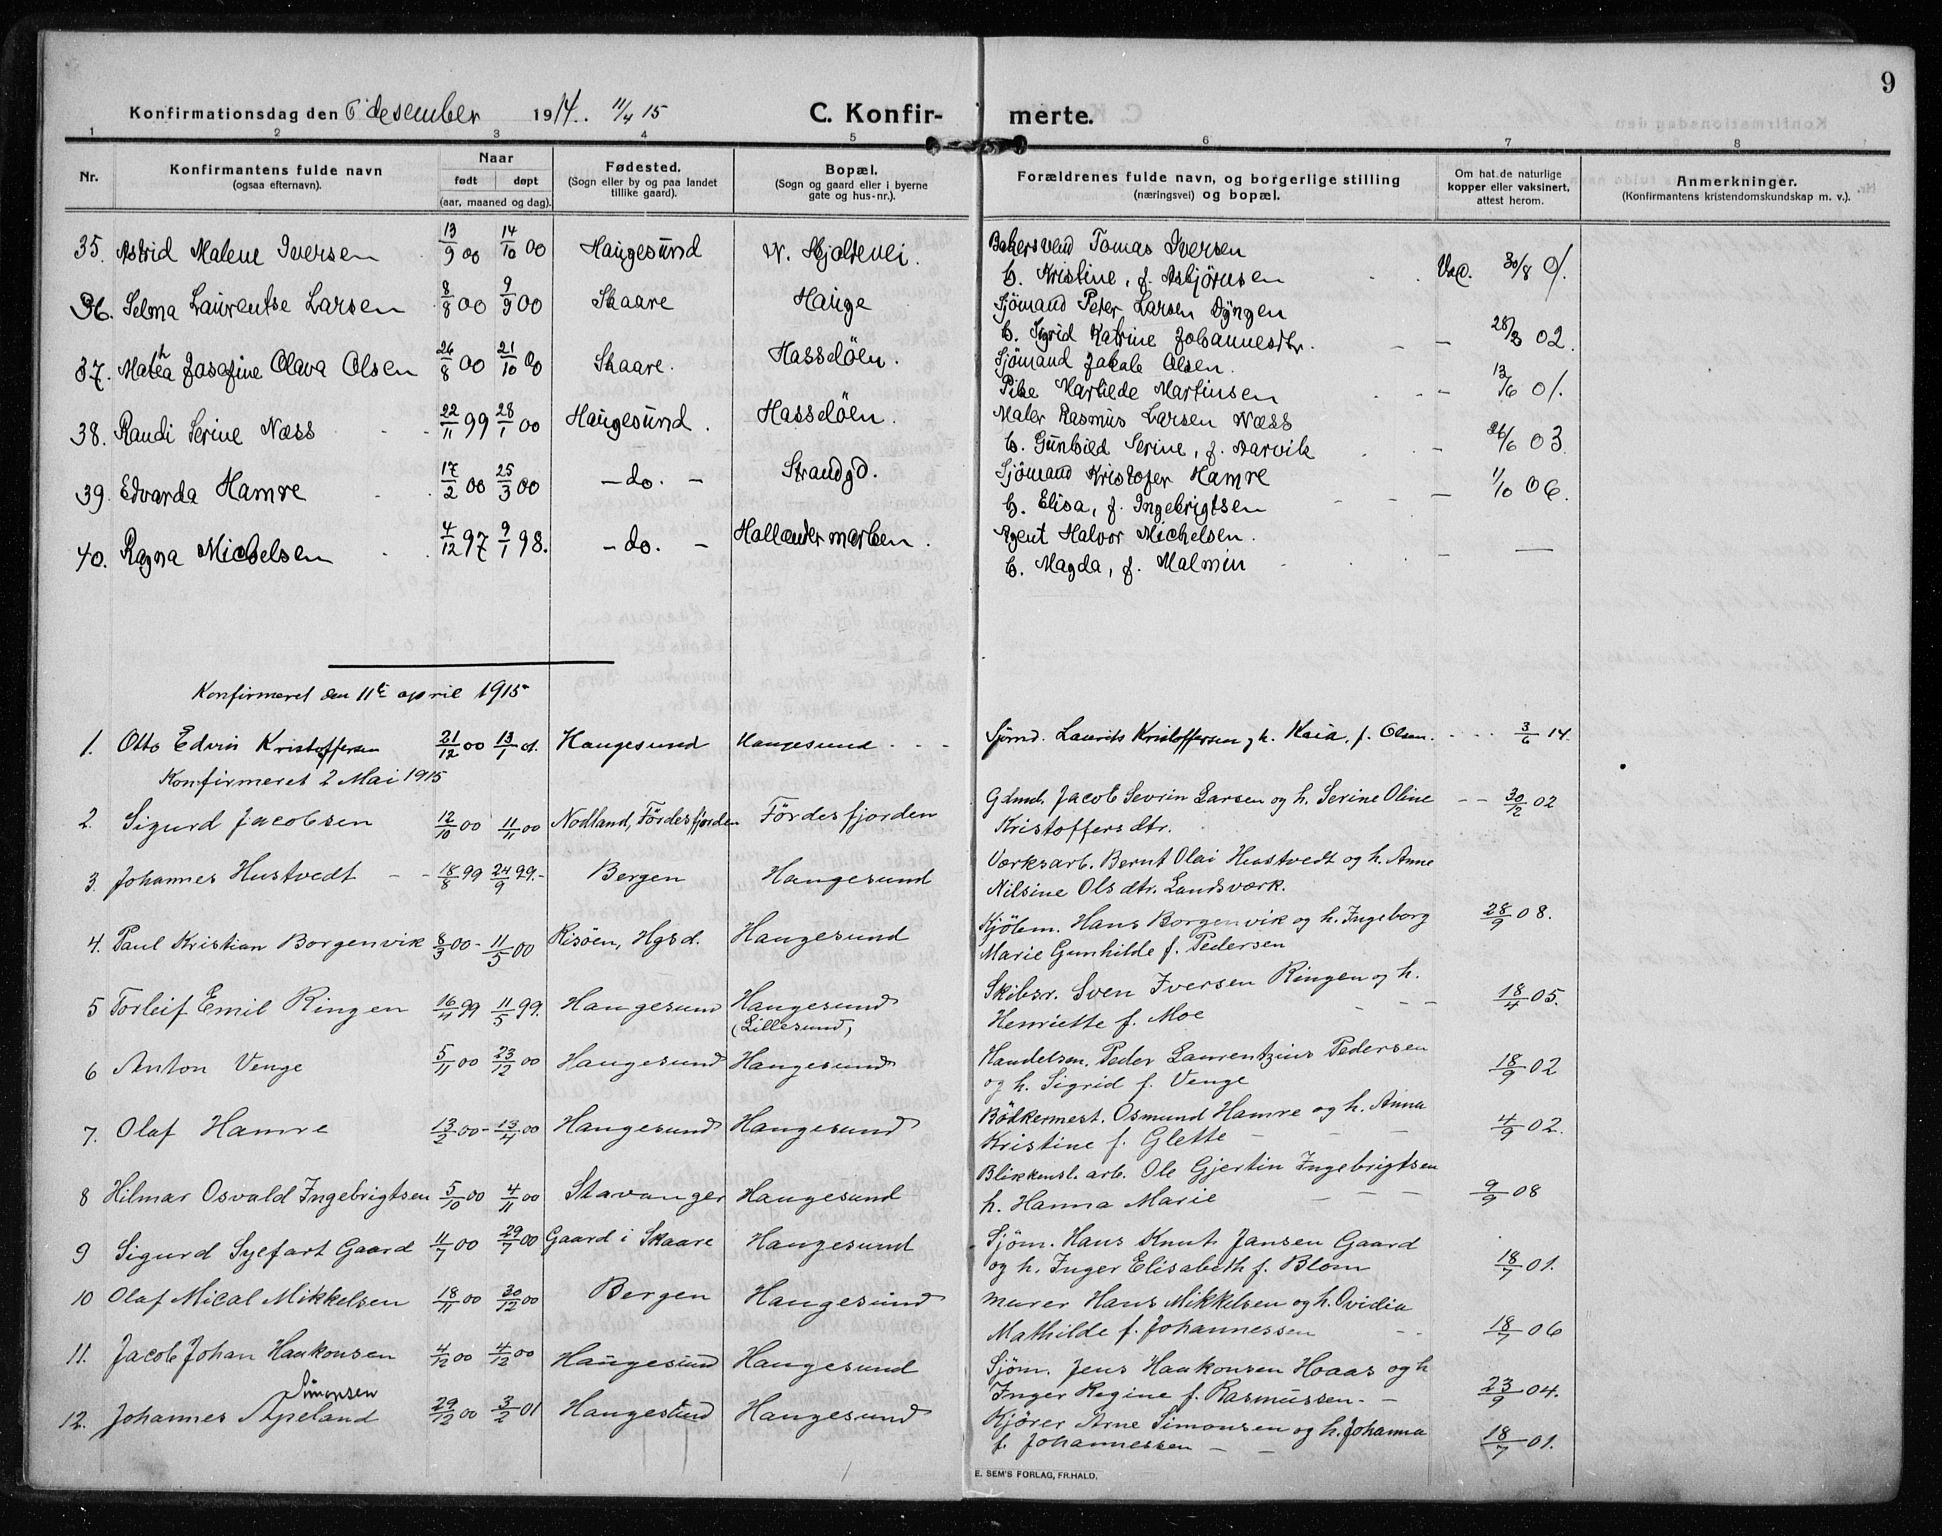 9
Konfirmationsdag den 6 desember 1914. 11/4 15 C. Konfir- merte.
1 2 3 4 5 6 7 8
Nr. Konfirmantens fulde navn (ogsaa efternavn). Naar født døpt (aar, maaned og dag). Fødested. (Sogn eller by og paa landet tillike gaard). Bopæl. (Sogn og gaard eller i byerne gate og hus-nr.). Forældrenes fulde navn, og borgerlige stilling (næringsvei) og bopæl. Om hat. de naturlige kopper eller vaksinert, attest herom. Anmerkninger. (Konfirmantens kristendomskundskap m. v.).
35. Astrid Malene Iversen 13/9 00 14/10 00 Haugesund N. Skjoldevei. Bakersvend Tomas Iversen Vac. 30/8 01.
h. Kristine, f. Asbjörnsen
36. Selma Laurentse Larsen 8/8 00 9/9 00 Skaare Hauge Sjömand Peter Larsen Dyngen
h. Sigrid Katrine Johannesdtr. - - 28/3 02.
37. Mathea Josefine Olava Olsen 26/8 00 21/10 00 Skaare. Hasselöen. Sjömand Jakob Olsen.
Pike Martilde Martinsen - 13/6 01.
38. Randi Serine Næss 22/11 99 28/1 00 Haugesund. Hasselöen. Maler Rasmus Larsen Næss
h. Gunhild Serine, f. Aarvik - 26/6 03
39. Edvarda Hamre 17/2 00 25/3 00 - do. - Strandgd. Sjömand Kristofer Hamre 1/10 06.
h. Elisa, f. Ingebrigtsen - -
40. Ragna Michelsen 4/12 97 9/1 98. - do. - Hollendermarken. Agent Halvor Michelsen.
h. Magda, f. Malmin - —
Konfirmeret den 11te april 1915
1. Otto Edvin Kristoffersen 21/12 00 13/1 01. Haugesund Haugesund Sjömd. Laurits Kristoffersen og h. Kaia, f. Olsen. 3/6 14.
Konfirmeret 2 Mai 1915
2. Sigurd Jacobsen 12/10 00 11/11 00 Nodland, Fördesfjorden Fördesfjorden Gdmd. Jacob Sevrin Larsen og h. Serine Oline - - 30/2 02
Kristoffersdtr.
3. Johannes Hustvedt - - 18/8 99 24/9 99.- Bergen Haugesund Værksarb. Bernt Olai Hustvedt og h. Anne
Nilsine Olsdtr. Landsværk.
4. Paul Kristian Borgenvik 8/3 00 - 11/5 00 Risöen, Hgsd. Haugesund Kjölem. Hans Borgenvik og h. Ingeborg 28/9 08.
Marie Gunhilde f. Pedersen
5 Torleif Emil Ringen 16/4 99 11/5 99. Haugesund Haugesund (Lillesund) Skibsr. Sven Iversen Ringen og h. 18/4 05.
Henriette f. Moe - - -
6 Anton Venge 5/11 00 23/12 00 Haugesund Haugesund Handelsm. Peder Laurentzius Pedersen 18/9 02
og h. Sigrid f. Venge
7. Olaf Hamre 13/2 00 - 13/4 00 Haugesund Haugesund Bödkermest. Osmund Hamre og h. Anna 4/9 02.
Kristine f. Glette - - -
8 Hilmar Osvald Ingebrigtsen 5/10 00 4/11 00 Stavanger Haugesund Blikkensl. arb. Ole Gjertin Ingebrigtsen 9/9 08
h. Hanna Marie - - -
9 Sigurd Syefart Gaard 11/7 00 29/7 00 Gaard i Skaare Haugesund Sjöm. Hans Knut Jansen Gaard
og h. Inger Elisabeth f. Blom 18/7 01.
10 Olaf Mical Mikkelsen 18/11 00 30/12 00 Bergen Haugesund murer Hans Mikkelsen og h. Ovidia
Mathilde f. Johannessen - - 18/7 06
11. Jacob Johan Haakonsen 4/12 00 4/12 00 Haugesund Haugesund Sjöm. Jens Haakonsen Hoaas og h
Inger Regine f. Rasmussen. - 23/9 04.
12. Johannes Simonsen Apeland 29/12 00 3/2 01 Haugesund Haugesund Kjörer Arne Simonsen og h. Johanna
f. Johannessen - - 18/7 01.
E. SEM'S FORLAG, FR.HALD.